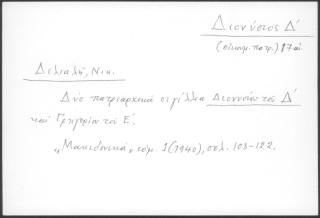 Διονύσιος Δ΄
(οἰκουμ. πατρ.) 17 αἰ.
Δελιαλῆ, Νικ.
Δύο πατριαρχικὰ σιγίλλια Διονυσίου τοῦ Δ΄
καὶ Γρηγορίου τοῦ Ε΄.
„Μακεδονικά" τόμ. 1 (1940), σελ. 108-122.